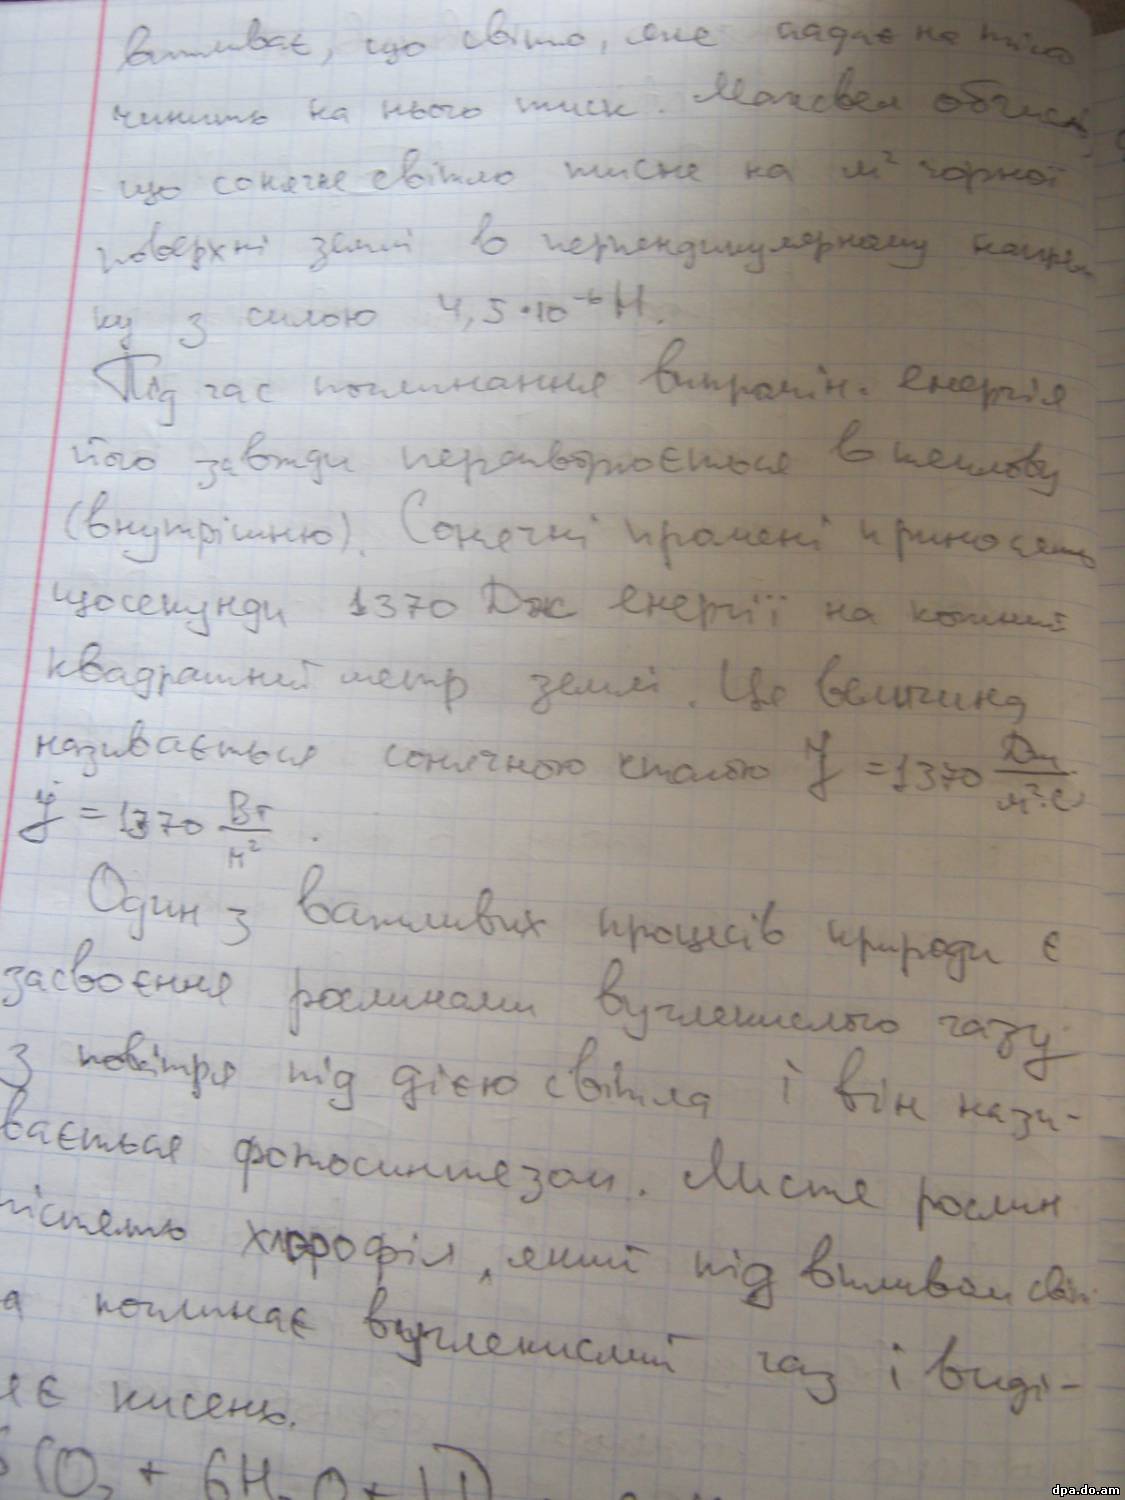 випливає, що світло, яке падає на тіло
чинить на нього тиск. Максвел обчисл,
що сонячне світло тисне на м² чорної
поверхні землі в перпендикулярному напрям
ку з силою 4,5•10⁻⁶ Н.
Під час поглинання випромін. енергія
його завжди перетворюється в теплову
(внутрішню). Сонячні промені приносять
щосекунди 1370 Дж енергії на кожний
квадратний метр землі. Це величина
називається сонячною сталою J = 1370 Дж/м²·с
J = 1370 Вт/м².
Один з важливих процесів природи є
засвоєння рослинами вуглекислого газу
з повітря під дією світла і він нази-
вається фотосинтезом. Листя рослин
містять хлорофіл, який під впливом світ
а поглинає вуглекислий газ і виді-
ляє кисень.
6CO₂ + 6H₂O +
dpa.do.am